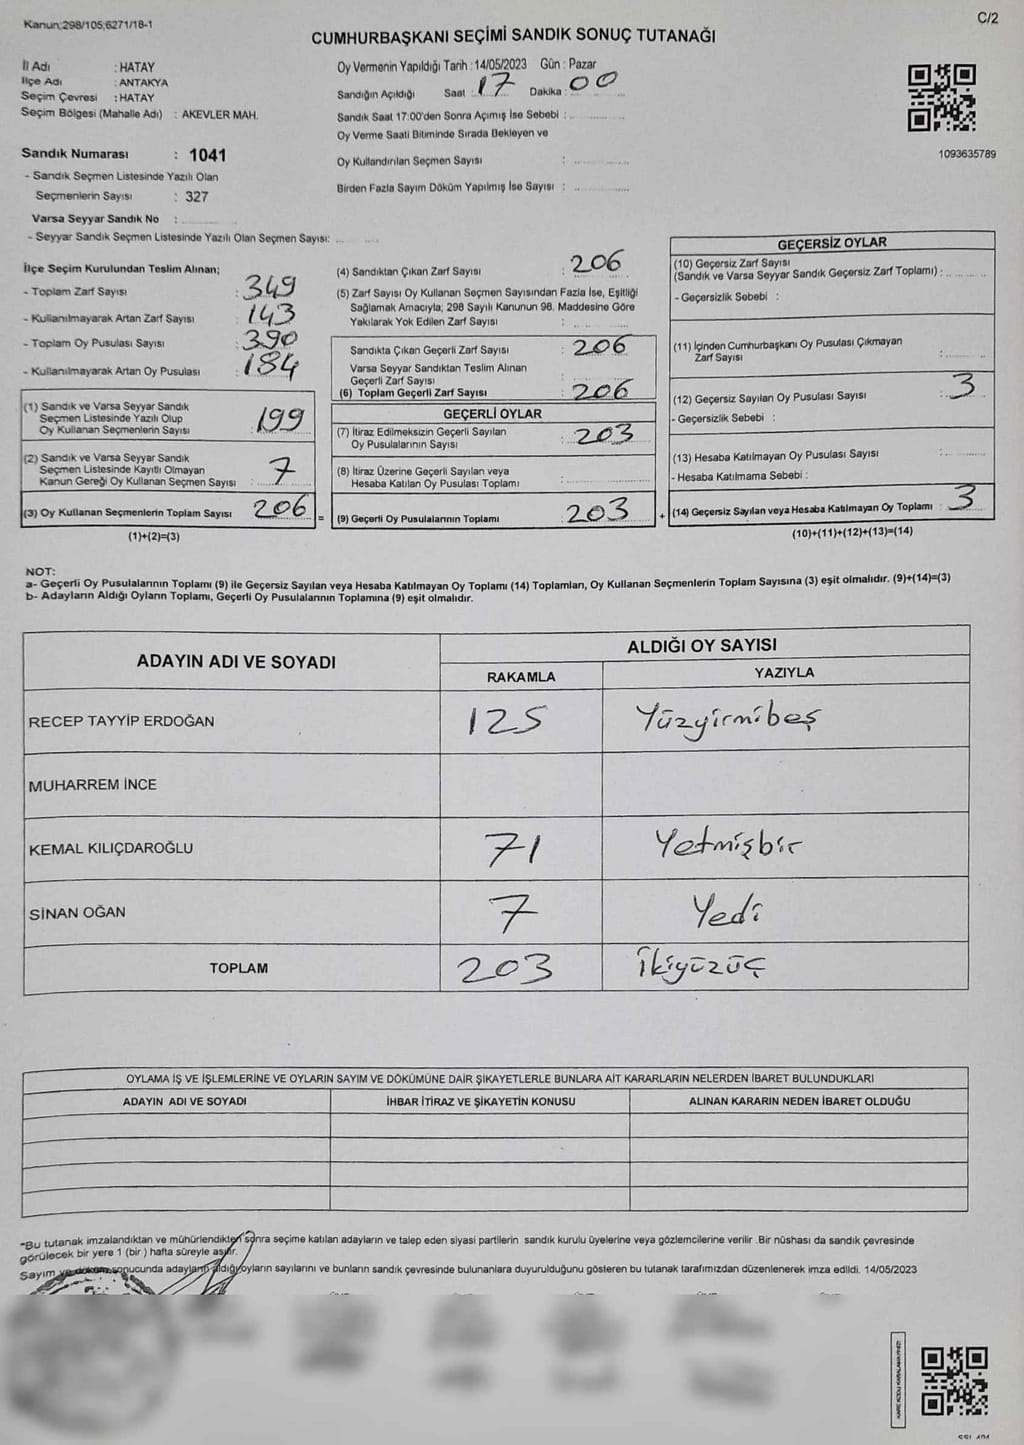 Kanun:298/105;6271/18-1
C/2
CUMHURBAŞKANI SEÇİMİ SANDIK SONUÇ TUTANAĞI
İl Adı : HATAY
İlçe Adı : ANTAKYA
Seçim Çevresi : HATAY
Seçim Bölgesi (Mahalle Adı) : AKEVLER MAH.
Oy Vermenin Yapıldığı Tarih : 14/05/2023 Gün : Pazar
Sandığın Açıldığı Saat : 17 Dakika : 00
Sandık Saat 17:00'den Sonra Açımış İse Sebebi :
Oy Verme Saati Bitiminde Sırada Bekleyen ve
Oy Kullandırılan Seçmen Sayısı :
Birden Fazla Sayım Döküm Yapılmış İse Sayısı :
1093635789
Sandık Numarası : 1041
- Sandık Seçmen Listesinde Yazılı Olan
Seçmenlerin Sayısı : 327
Varsa Seyyar Sandık No :
- Seyyar Sandık Seçmen Listesinde Yazılı Olan Seçmen Sayısı:
İlçe Seçim Kurulundan Teslim Alınan;
- Toplam Zarf Sayısı : 349
- Kullanılmayarak Artan Zarf Sayısı : 143
- Toplam Oy Pusulası Sayısı : 390
- Kullanılmayarak Artan Oy Pusulası : 184
(1) Sandık ve Varsa Seyyar Sandık
Seçmen Listesinde Yazılı Olup
Oy Kullanan Seçmenlerin Sayısı : 199
(2) Sandık ve Varsa Seyyar Sandık
Seçmen Listesinde Kayıtlı Olmayan
Kanun Gereği Oy Kullanan Seçmen Sayısı : 7
(3) Oy Kullanan Seçmenlerin Toplam Sayısı 206 =
(1)+(2)=(3)
(4) Sandıktan Çıkan Zarf Sayısı : 206
(5) Zarf Sayısı Oy Kullanan Seçmen Sayısından Fazla İse, Eşitliği
Sağlamak Amacıyla; 298 Sayılı Kanunun 98. Maddesine Göre
Yakılarak Yok Edilen Zarf Sayısı :
Sandıkta Çıkan Geçerli Zarf Sayısı : 206
Varsa Seyyar Sandıktan Teslim Alınan
Geçerli Zarf Sayısı :
(6) Toplam Geçerli Zarf Sayısı : 206
GEÇERLİ OYLAR
(7) İtiraz Edilmeksizin Geçerli Sayılan
Oy Pusulalarının Sayısı : 203
(8) İtiraz Üzerine Geçerli Sayılan veya
Hesaba Katılan Oy Pusulası Toplamı :
(9) Geçerli Oy Pusulalarının Toplamı : 203 +
GEÇERSİZ OYLAR
(10) Geçersiz Zarf Sayısı
(Sandık ve Varsa Seyyar Sandık Geçersiz Zarf Toplamı) :
- Geçersizlik Sebebi :
(11) İçinden Cumhurbaşkanı Oy Pusulası Çıkmayan
Zarf Sayısı :
(12) Geçersiz Sayılan Oy Pusulası Sayısı : 3
- Geçersizlik Sebebi :
(13) Hesaba Katılmayan Oy Pusulası Sayısı :
- Hesaba Katılmama Sebebi :
(14) Geçersiz Sayılan veya Hesaba Katılmayan Oy Toplamı : 3
(10)+(11)+(12)+(13)=(14)
NOT:
a- Geçerli Oy Pusulalarının Toplamı (9) ile Geçersiz Sayılan veya Hesaba Katılmayan Oy Toplamı (14) Toplamları, Oy Kullanan Seçmenlerin Toplam Sayısına (3) eşit olmalıdır. (9)+(14)=(3)
b- Adayların Aldığı Oyların Toplamı, Geçerli Oy Pusulalarının Toplamına (9) eşit olmalıdır.
ADAYIN ADI VE SOYADI
ALDIĞI OY SAYISI
RAKAMLA YAZIYLA
RECEP TAYYİP ERDOĞAN 125 Yüzyirmibeş
MUHARREM İNCE
KEMAL KILIÇDAROĞLU 71 Yetmişbir
SİNAN OĞAN 7 Yedi
TOPLAM 203 İkiyüzüç
OYLAMA İŞ VE İŞLEMLERİNE VE OYLARIN SAYIM VE DÖKÜMÜNE DAİR ŞİKAYETLERLE BUNLARA AİT KARARLARIN NELERDEN İBARET BULUNDUKLARI
ADAYIN ADI VE SOYADI İHBAR İTİRAZ VE ŞİKAYETİN KONUSU ALINAN KARARIN NEDEN İBARET OLDUĞU
"Bu tutanak imzalandıktan ve mühürlendikten sonra seçime katılan adayların ve talep eden siyasi partilerin sandık kurulu üyelerine veya gözlemcilerine verilir .Bir nüshası da sandık çevresinde
görülecek bir yere 1 (bir ) hafta süreyle asılır.
Sayım ve döküm sonucunda adayların aldığı oyların sayılarını ve bunların sandık çevresinde bulunanlara duyurulduğunu gösteren bu tutanak tarafımızdan düzenlenerek imza edildi. 14/05/2023